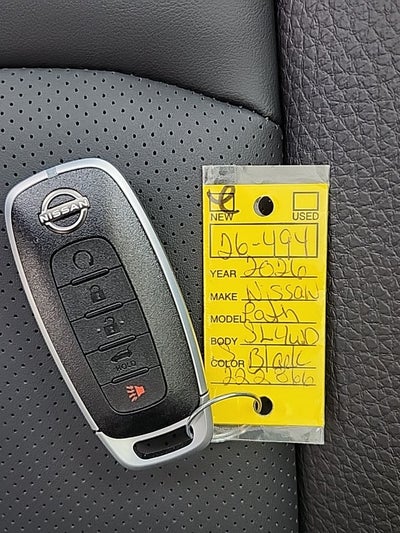 NISSAN
HOLD
NEW USED
26-494
YEAR 2026
MAKE Nissan
MODEL Path
BODY SL4WD
COLOR Black
222866